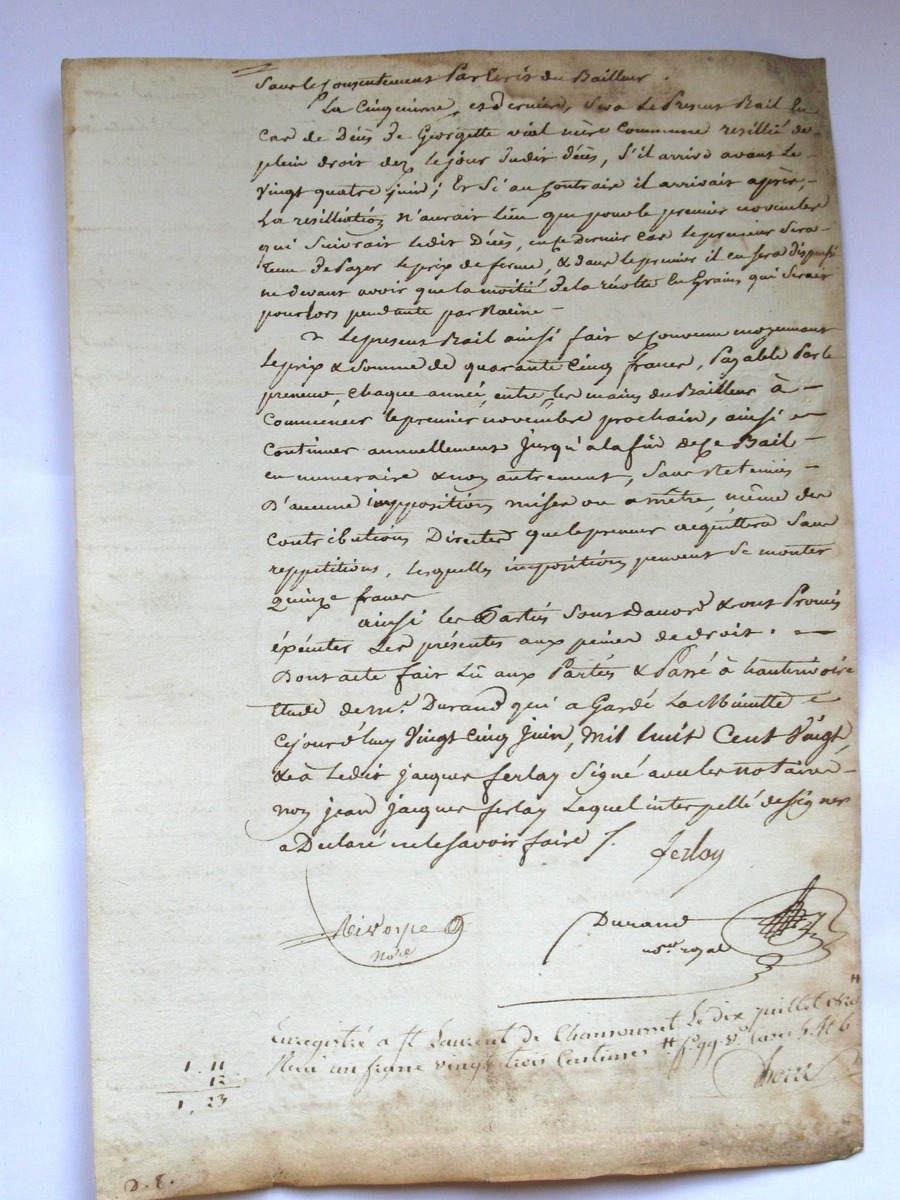 Sans le Consentement Par Ecrit du Bailleur.
La Cinquieme, et Derniere, Sera Le Present Bail En
cas de Décès de Georgette vial mère Commune resillié de
plein droit dez le jour Dudit décès, S'il arrive avant Le
Vingt quatre juin; Et Si au Contraire il arrivait après,
La resilliation n'aurait lieu que pour le premier novembre
qui Suivrait ledit Décès, en ce Dernier Cas le preneur Sera
Tenu de Payer le prix de ferme, & dans le premier il en sera dispensé
ne devant avoir que la moitié de la récolte En Grains qui Serait
pour lors pendante par Racine
Le present Bail ainsi fait & Convenu moyennant
Le prix & Somme de quarante Cinq francs, Payable Par le
preneur, chaque année, entre les mains du Bailleur à
Commencer le premier novembre prochain, ainsi
Continuer annuellement jusqu'à la fin de Ce Bail
en numeraire & non autrement, Sans Retenues
D'aucune imposition mises ou a mêtre, même des
Contributions Directes que le preneur acquittera Sans
reppetitions, lesquelles impositions peuvent Se monter
quinze francs
ainsi les Parties Sont d'accord & ont Promis
éxécuter Les présentes aux peines de droit.
Dont acte fait Lû aux Parties & Passé à hauterivoire
Etude de Me. Durand qui a Gardé La Minutte
Cejourd'huy Vingt Cinq juin, mil huit Cent Vingt,
& a Ledit jacques ferlay Signé avec les notaires
non jean jacques ferlay Lequel interpellé de signer
a Declaré ne le Savoir faire /.
ferlay
Note
Durand
nore royal
Enregistré a St Laurent de Chamousset Le dix juillet 1820
Reçu un franc vingt trois Centimes fo. 99. Vo. Case
1. 11
12
1, 23
D. E.